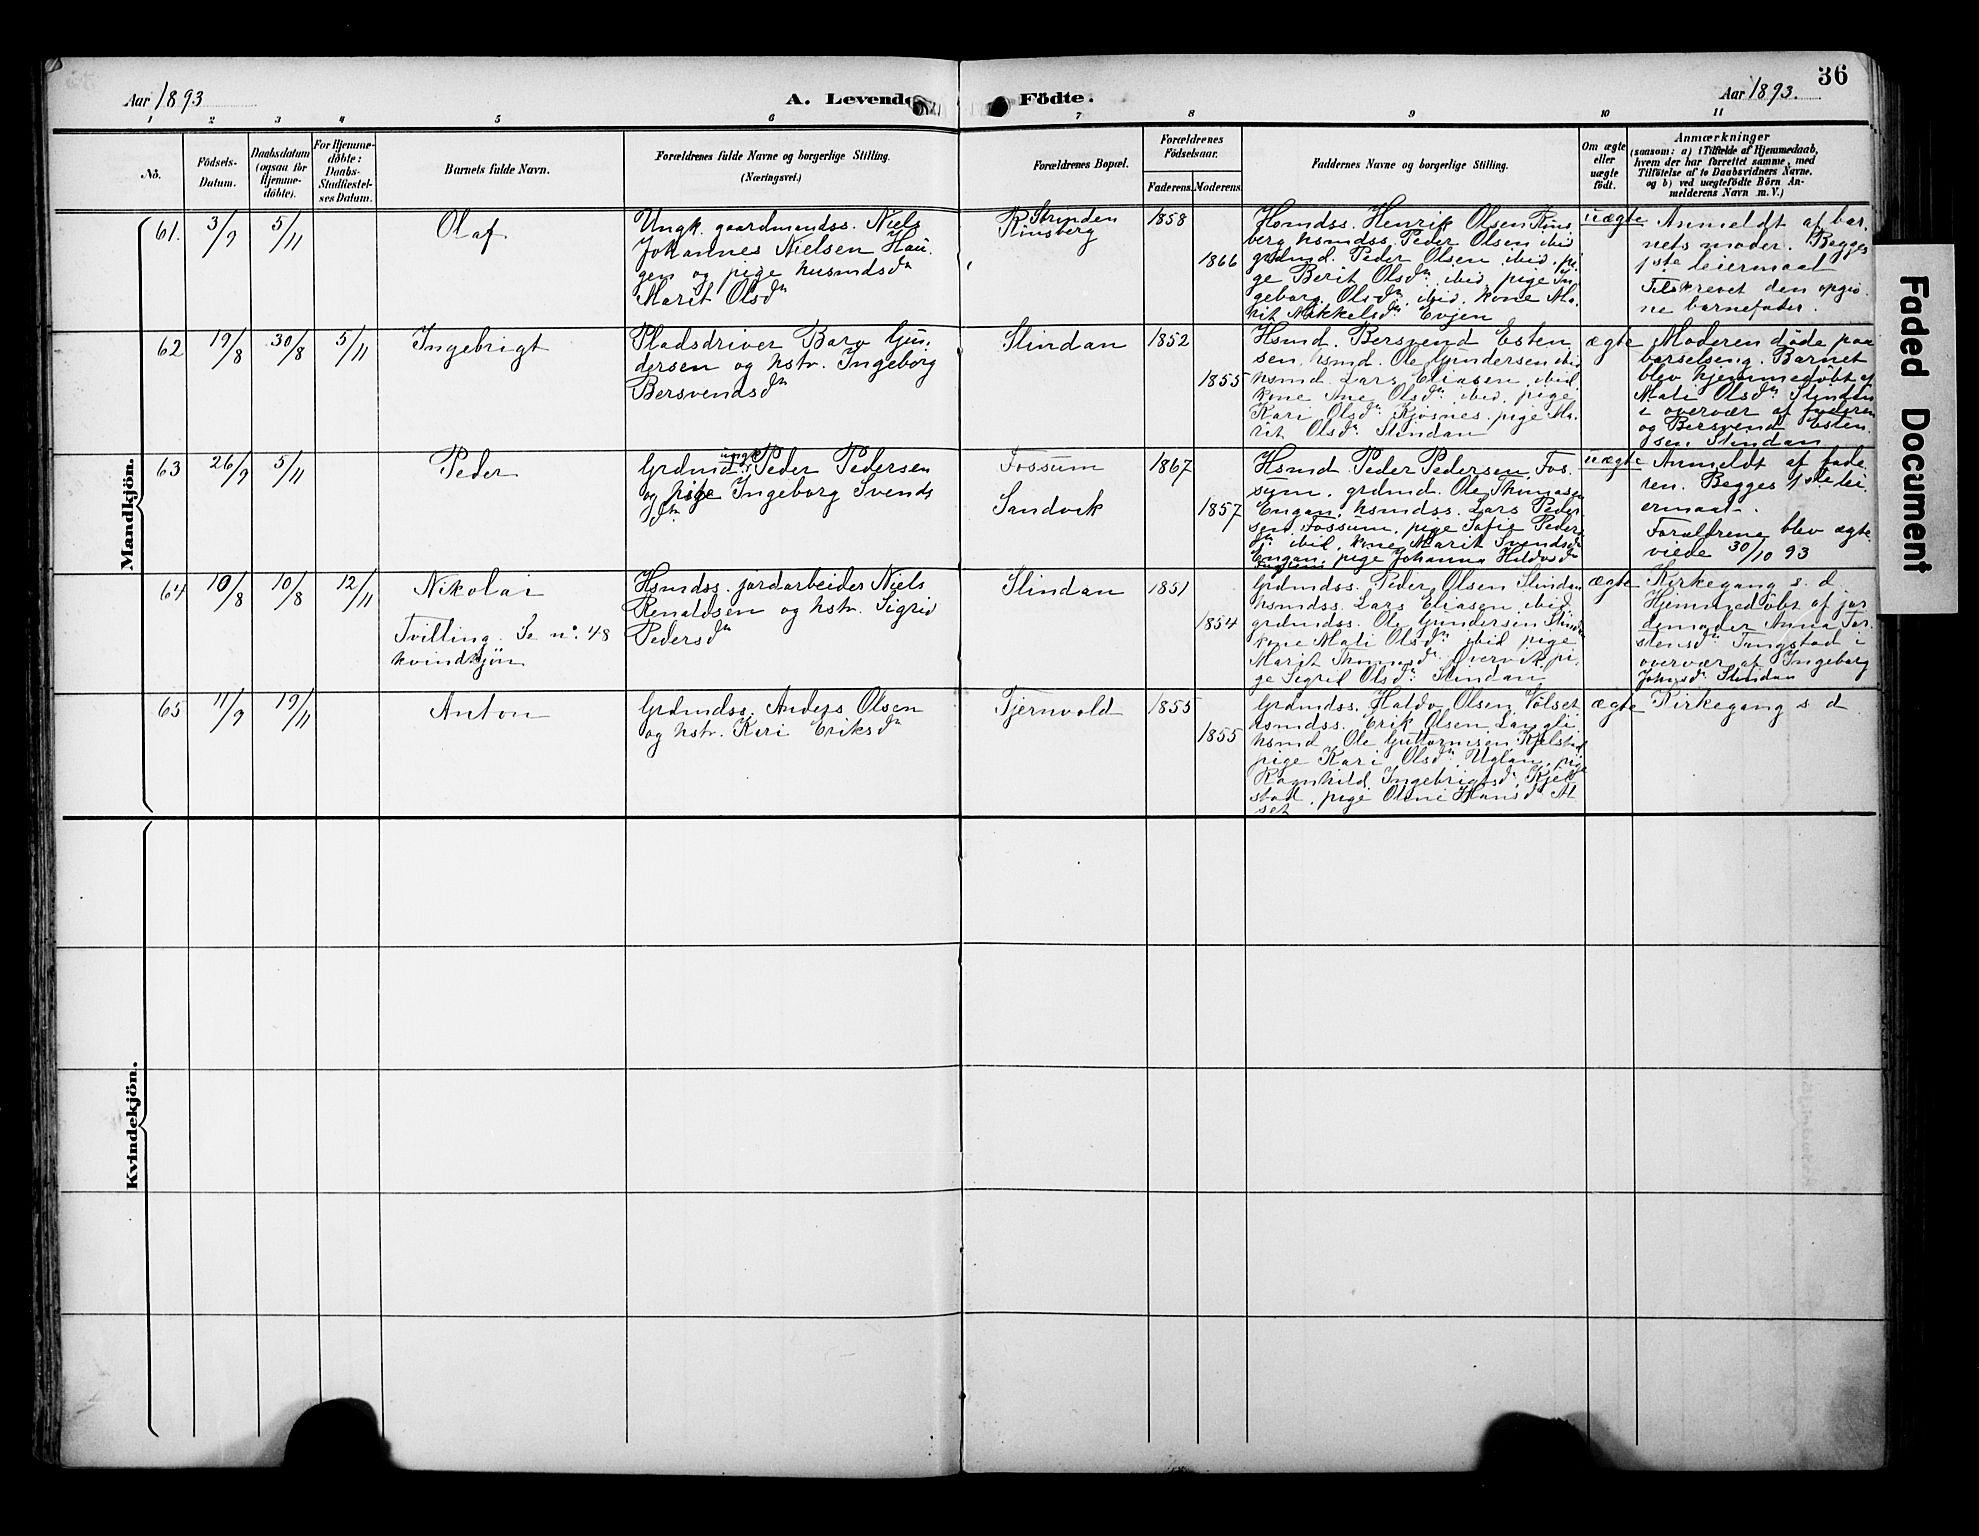 36
Aar 1893
A. Levende Födte.
Aar 1893.
1 2 3 4 5 6 7 8 9 10 11
No.
Födsels-
Datum.
Daabsdatum
(ogsaa for
Hjemme-
døbte).
For Hjemme-
døbte:
Daabs-
Stadfæstel-
ses Datum.
Barnets fulde Navn.
Forældrenes fulde Navne og borgerlige Stilling.
(Næringsvei.)
Forældrenes Bopæl.
Forældrenes
Födselsaar.
Faderens. Moderens.
Faddernes Navne og borgerlige Stilling.
Om ægte
eller
uægte
født.
Anmærkninger
(saasom: a) i Tilfælde af Hjemmedaab,
hvem der har forrettet samme, med
Tilføielse af to Daabsvidners Navne,
og b) ved uægtefödte Börn An-
melderens Navn m. V.)
Mandkjön.
61.
3/9
5/11
Olaf
Ungk. gaardmandss. Niels
Johannes Nielsen Hau-
gen og pige husmdsdr
Marit Olsdr
Strinden
Rinsberg
1858
1866
Hsmdss. Henrik Olsen Rins-
berg, hsmdss. Peder Olsen ibid
grdmd. Peder Olsen ibid, pi-
ge Berit Olsdr ibid, pige In-
geborg Olsdr ibid. kone Ma-
rit Mikkelsdr Evjen
uægte
Anmeldt af bar-
nets moder. Begges
1ste leiermaal
Tilskrevet den opgiv-
ne barnefader.
62
19/8
30/8
5/11
Ingebrigt
Pladsdriver Baro Gun-
dersen og hstr. Ingeborg
Bersvendsdr
Slindan
1852
1855
Hsmd. Bersvend Esten
sen, hsmd. Ole Gundersen ibid
hsmd. Lars Eliasen, ibid.
kone Ane Olsdr ibid, pige
Kari Olsdr Kjøsnes. pige Ma-
rit Olsdr Slindan
ægte
Moderen døde paa
barselseng. Barnet
blev hjemmedøbt af
Mali Olsdr Slindan
i overvær af faderen
og Bersvend Esten
sen Slindan
63
26/9
5/11
Peder
ungk.
Grdmds. Peder Pedersen
og pige Ingeborg Svends
dr
Fossum
Sandvik
1867
1857
Hsmd. Peder Pedersen Fos-
sum, grdmd. Ole Thomasen
Engan, hsmdss. Lars Peder-
sen Fossum, pige Sofie Peders
dr ibid, kone Marit Svendsdr
Engan, pige Johanna Hildosdr
uægte
Anmeldt af fade-
ren. Begges 1ste lei-
ermaal.
Forældrene blev ægte
viede 30/10 93
64
10/8
10/8
12/11
Nikolai
Tvilling. Se no. 48
kvindkjøn
Hsmdss. jordarbeider Niels
Renaldsen og hstr. Sigrid
Pedersdr
Slindan
1851
1854
Grdmdss. Peder Olsen Slindan
hsmdss. Lars Eliasen, ibid
grdmdss. Ole Gundersen Slindan
kone Mali Olsdr ibid pige
Marit Thomasdr Overvik, pi-
ge Sigril Olsdr Slindan
ægte
Kirkegang s. d.
Hjemmedøbt af jor
demoder Anna Tor-
stensdr Tangstad i
overvær af Ingeborg
Johnsdr Slindan
65
11/9
19/11
Anton
Grdmdss. Anders Olsen
og hstr. Kari Eriksdr
Tjernvold
1855
1855
Grdmdss. Haldo Olsen Vølset
hsmdss. Erik Olsen Langli
hsmd. Ole Guttormsen Kjelstad
pige Kari Olsdr Uglan, pige
Ragnhild Ingebrigtsdr Kjel
stad, pige Oline Hansdr Al
set
ægte
Kirkegang s d
Kvindekjön.
Faded Document